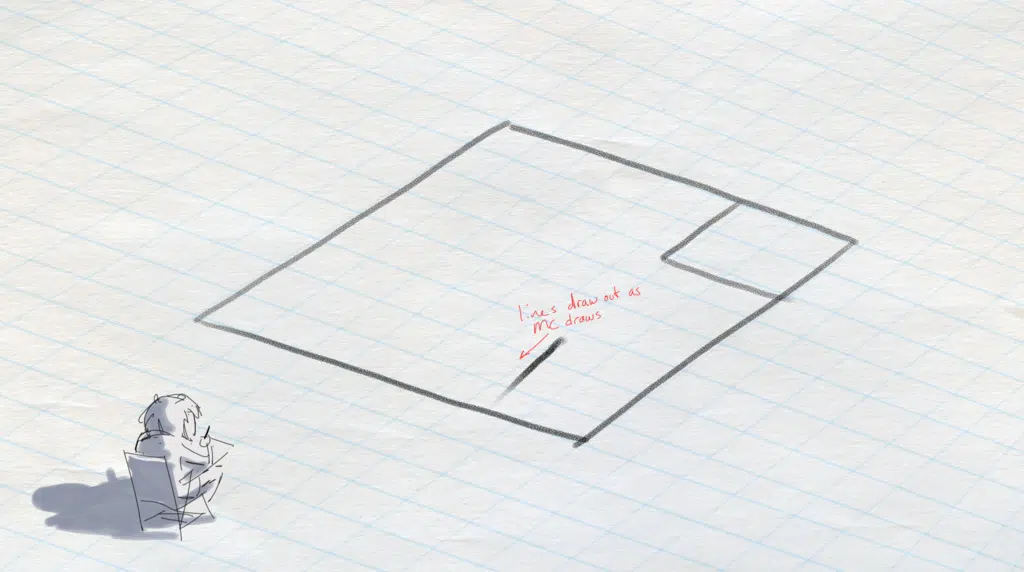 lines draw out as
MC draws